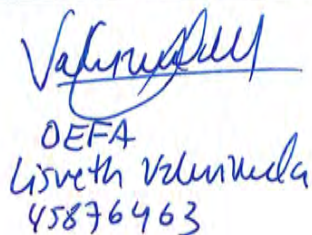 OEFA
Lisveth Valenzuela
45876463